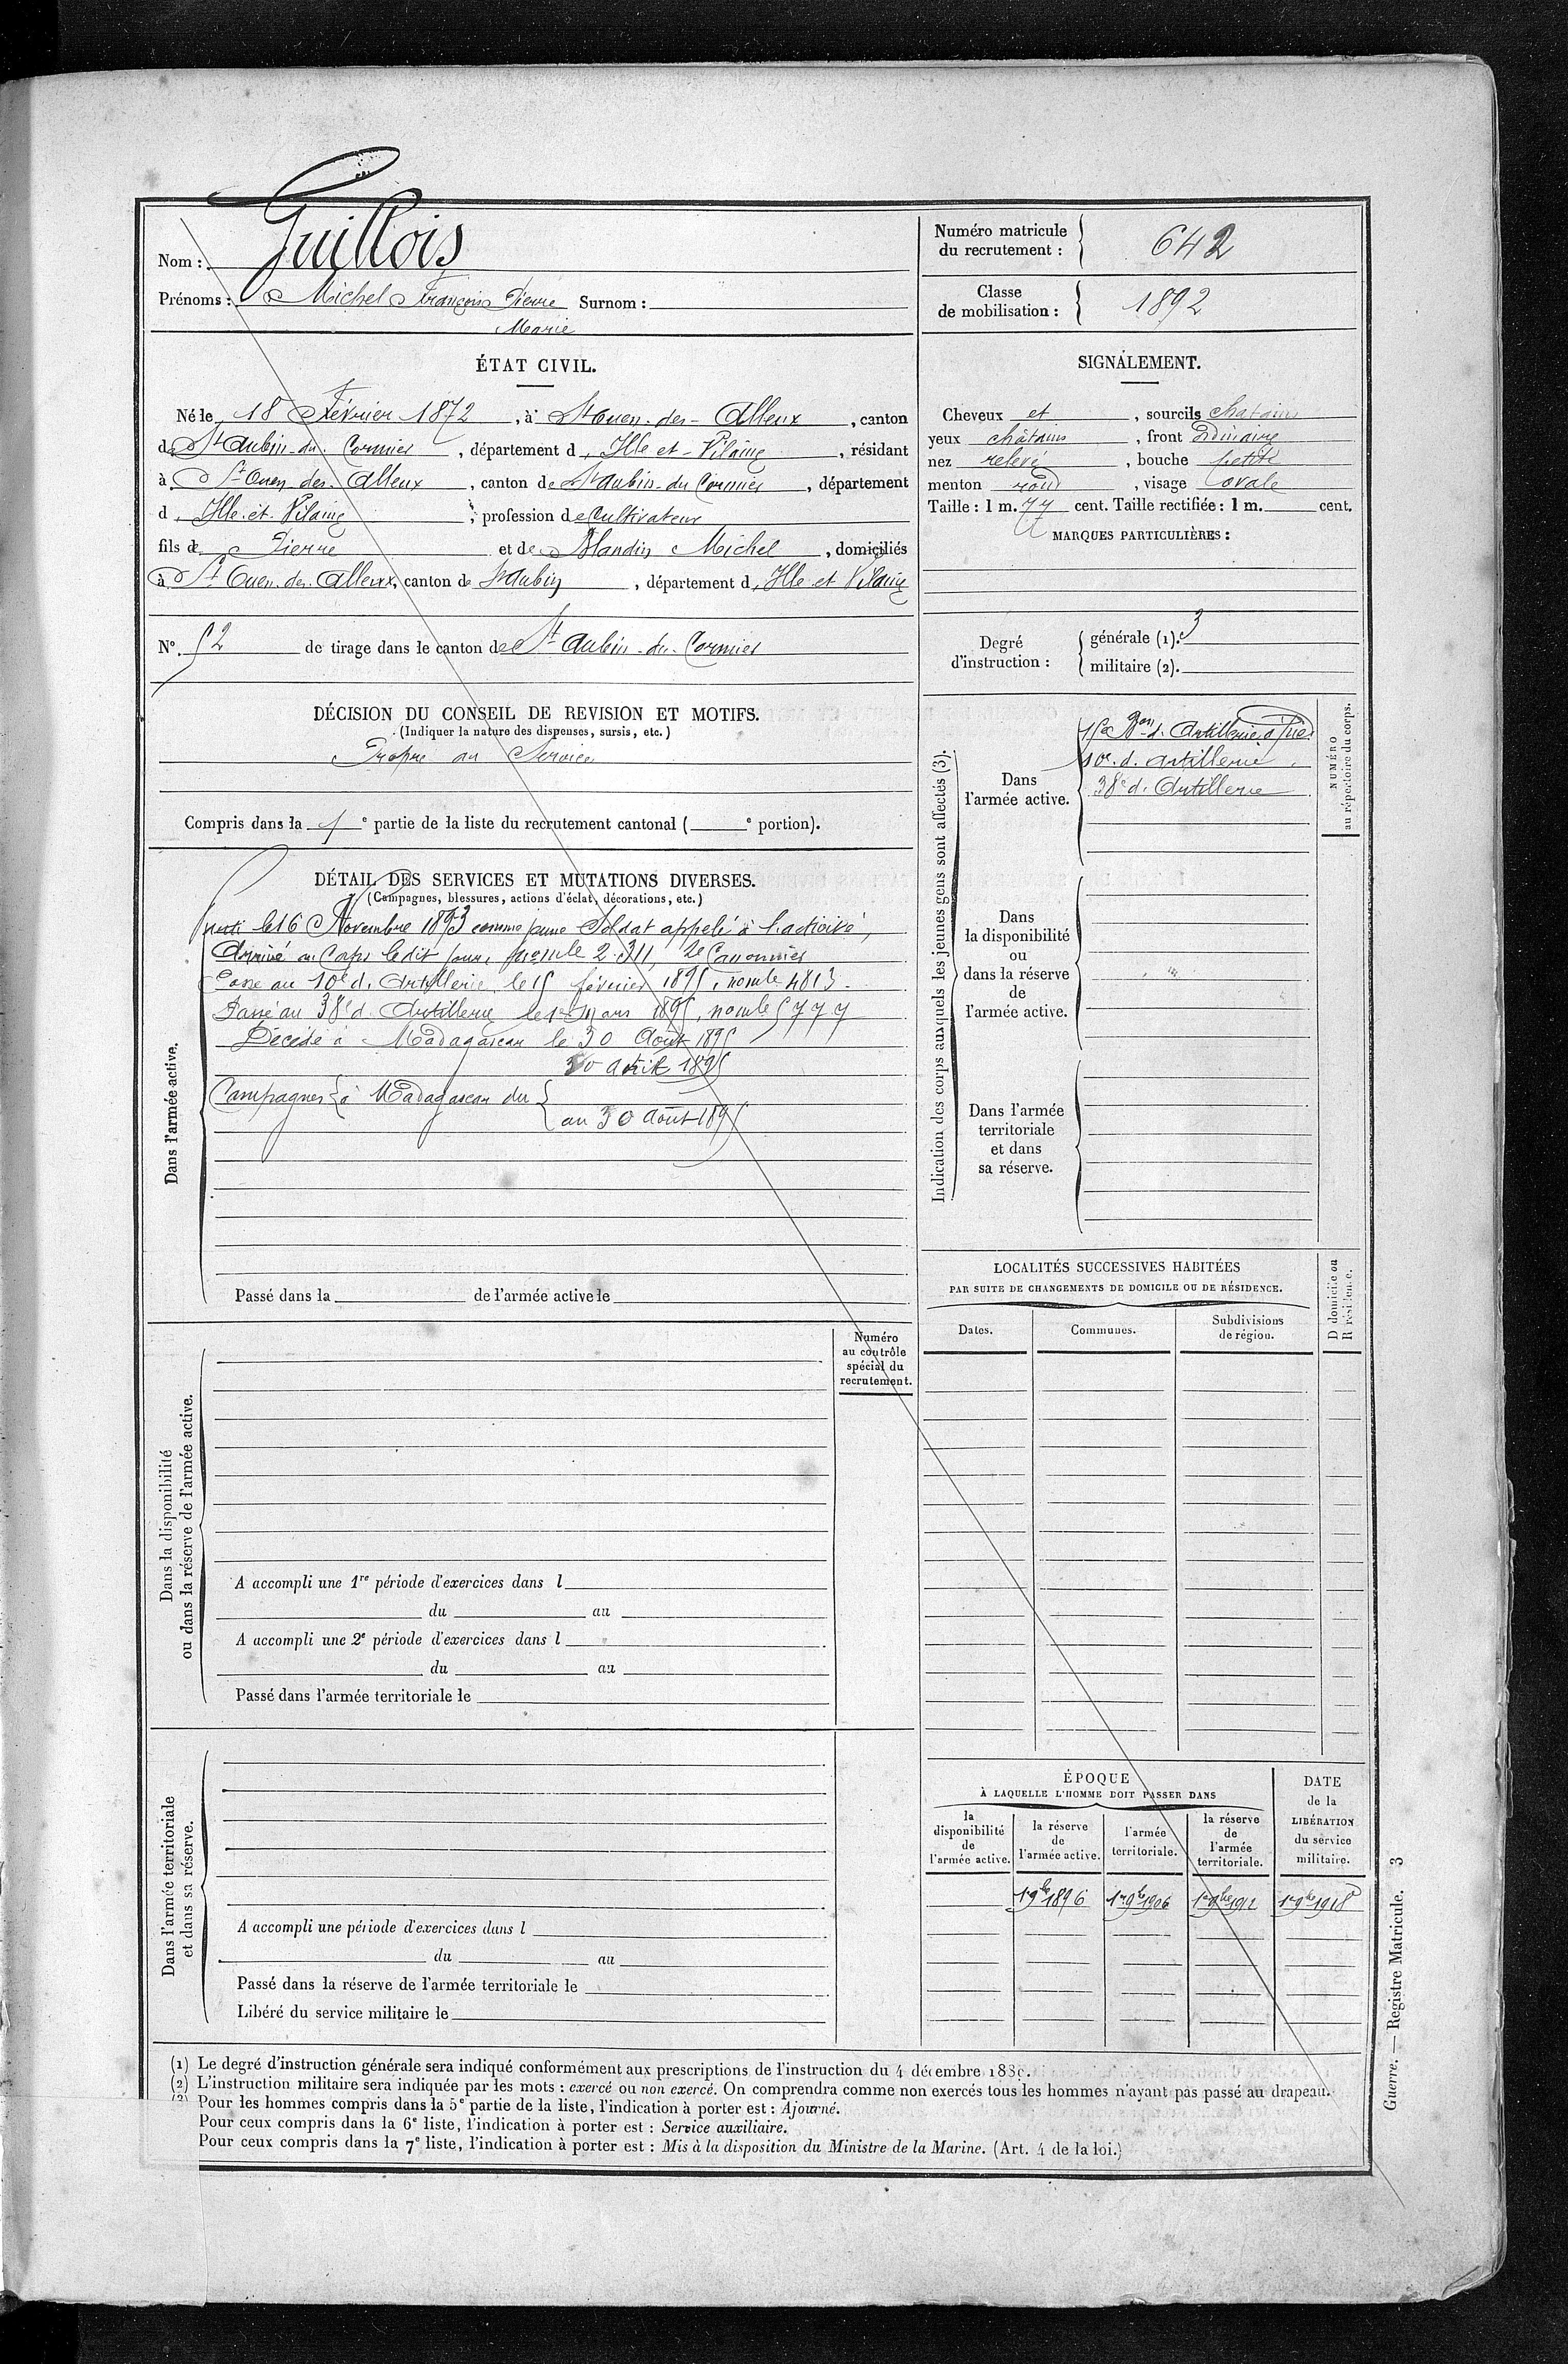 Nom : Guillois
Prénoms : Michel François Pierre Surnom :
Marie
Numéro matricule
du recrutement : 642
Classe
de mobilisation : 1892
ÉTAT CIVIL.
Né le 18 Février 1872, à St Ouen-des-Alleux, canton
de St Aubin-du-Cormier, département d Ille et-Vilaine, résidant
à St Ouen des Alleux, canton de St Aubin-du-Cormier, département
d Ille-et-Vilaine, profession de Cultivateur
fils de Pierre et de Blandin Michel, domiciliés
à St Ouen-des-Alleux, canton de St Aubin, département d Ille et Vilaine
N° 52 de tirage dans le canton de St Aubin-du-Cormier
SIGNALEMENT.
Cheveux et, sourcils chatains
yeux châtains, front ordinaire
nez relevé, bouche petite
menton rond, visage ovale
Taille : 1 m. 77 cent. Taille rectifiée : 1 m. cent.
MARQUES PARTICULIÈRES :
Degré
d'instruction :
générale (1). 3
militaire (2).
DÉCISION DU CONSEIL DE REVISION ET MOTIFS.
(Indiquer la nature des dispenses, sursis, etc.)
Propre au Service
Compris dans la 1e partie de la liste du recrutement cantonal ( e portion).
DÉTAIL DES SERVICES ET MUTATIONS DIVERSES.
(Campagnes, blessures, actions d'éclat, décorations, etc.)
Dans l'armée active.
le 16 Novembre 1893 comme jeune Soldat appelé à l'activité,
Arrivé au Corps le dit jour, 2e Canonnier
Passé au 10e d'Artillerie le 15 février 1895, no mle 4813.
Passé au 38e d'Artillerie le 1er Mars 1895, no mle 5777
Décédé à Madagascar le 30 Août 1895
Campagnes { à Madagascar du { 30 Avril 1895
au 30 Août 1895
Passé dans la de l'armée active le
Indication des corps auxquels les jeunes gens sont affectés (3).
NUMÉRO
au répertoire du corps.
Dans
l'armée active.
15e Bon d'Artillerie à Pied
10e d'artillerie
38e d'Artillerie
Dans
la disponibilité
ou
dans la réserve
de
l'armée active.
Dans l'armée
territoriale
et dans
sa réserve.
LOCALITÉS SUCCESSIVES HABITÉES
PAR SUITE DE CHANGEMENTS DE DOMICILE OU DE RÉSIDENCE.
Dates.
Communes.
Subdivisions
de région.
D domicile ou
R résidence.
Dans la disponibilité
ou dans la réserve de l'armée active.
Numéro
au contrôle
spécial du
recrutement.
A accompli une 1re période d'exercices dans l
du au
A accompli une 2e période d'exercices dans l
du au
Passé dans l'armée territoriale le
Dans l'armée territoriale
et dans sa réserve.
A accompli une période d'exercices dans l
du au
Passé dans la réserve de l'armée territoriale le
Libéré du service militaire le
ÉPOQUE
À LAQUELLE L'HOMME DOIT PASSER DANS
la
disponibilité
de
l'armée active.
la réserve
de
l'armée active.
l'armée
territoriale.
la réserve
de
l'armée
territoriale.
DATE
de la
LIBÉRATION
du service
militaire.
1 9bre 1896
1er 9bre 1906
1er 9bre 1912
1er 9bre 1918
(1) Le degré d'instruction générale sera indiqué conformément aux prescriptions de l'instruction du 4 décembre 1889.
(2) L'instruction militaire sera indiquée par les mots : exercé ou non exercé. On comprendra comme non exercés tous les hommes n'ayant pas passé au drapeau.
(3) Pour les hommes compris dans la 5e partie de la liste, l'indication à porter est : Ajourné.
Pour ceux compris dans la 6e liste, l'indication à porter est : Service auxiliaire.
Pour ceux compris dans la 7e liste, l'indication à porter est : Mis à la disposition du Ministre de la Marine. (Art. 4 de la loi.)
Guerre. — Registre Matricule. 3